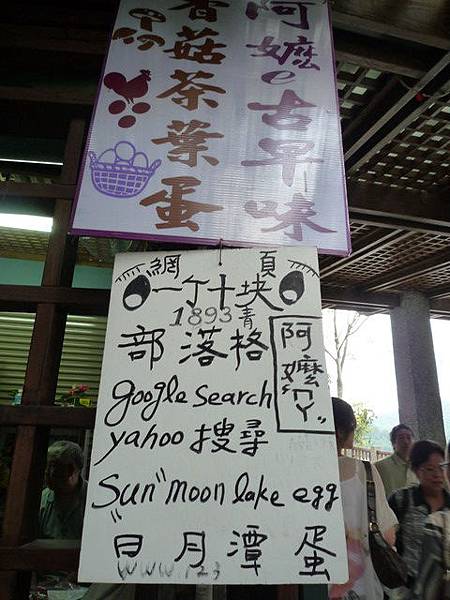 阿嬤e古早味
香菇茶葉蛋
網頁
一个十块
1893青
部落格
阿嬤ㄚ"
google search
yahoo 搜尋
"Sun" moon lake egg
日月潭蛋
www.123